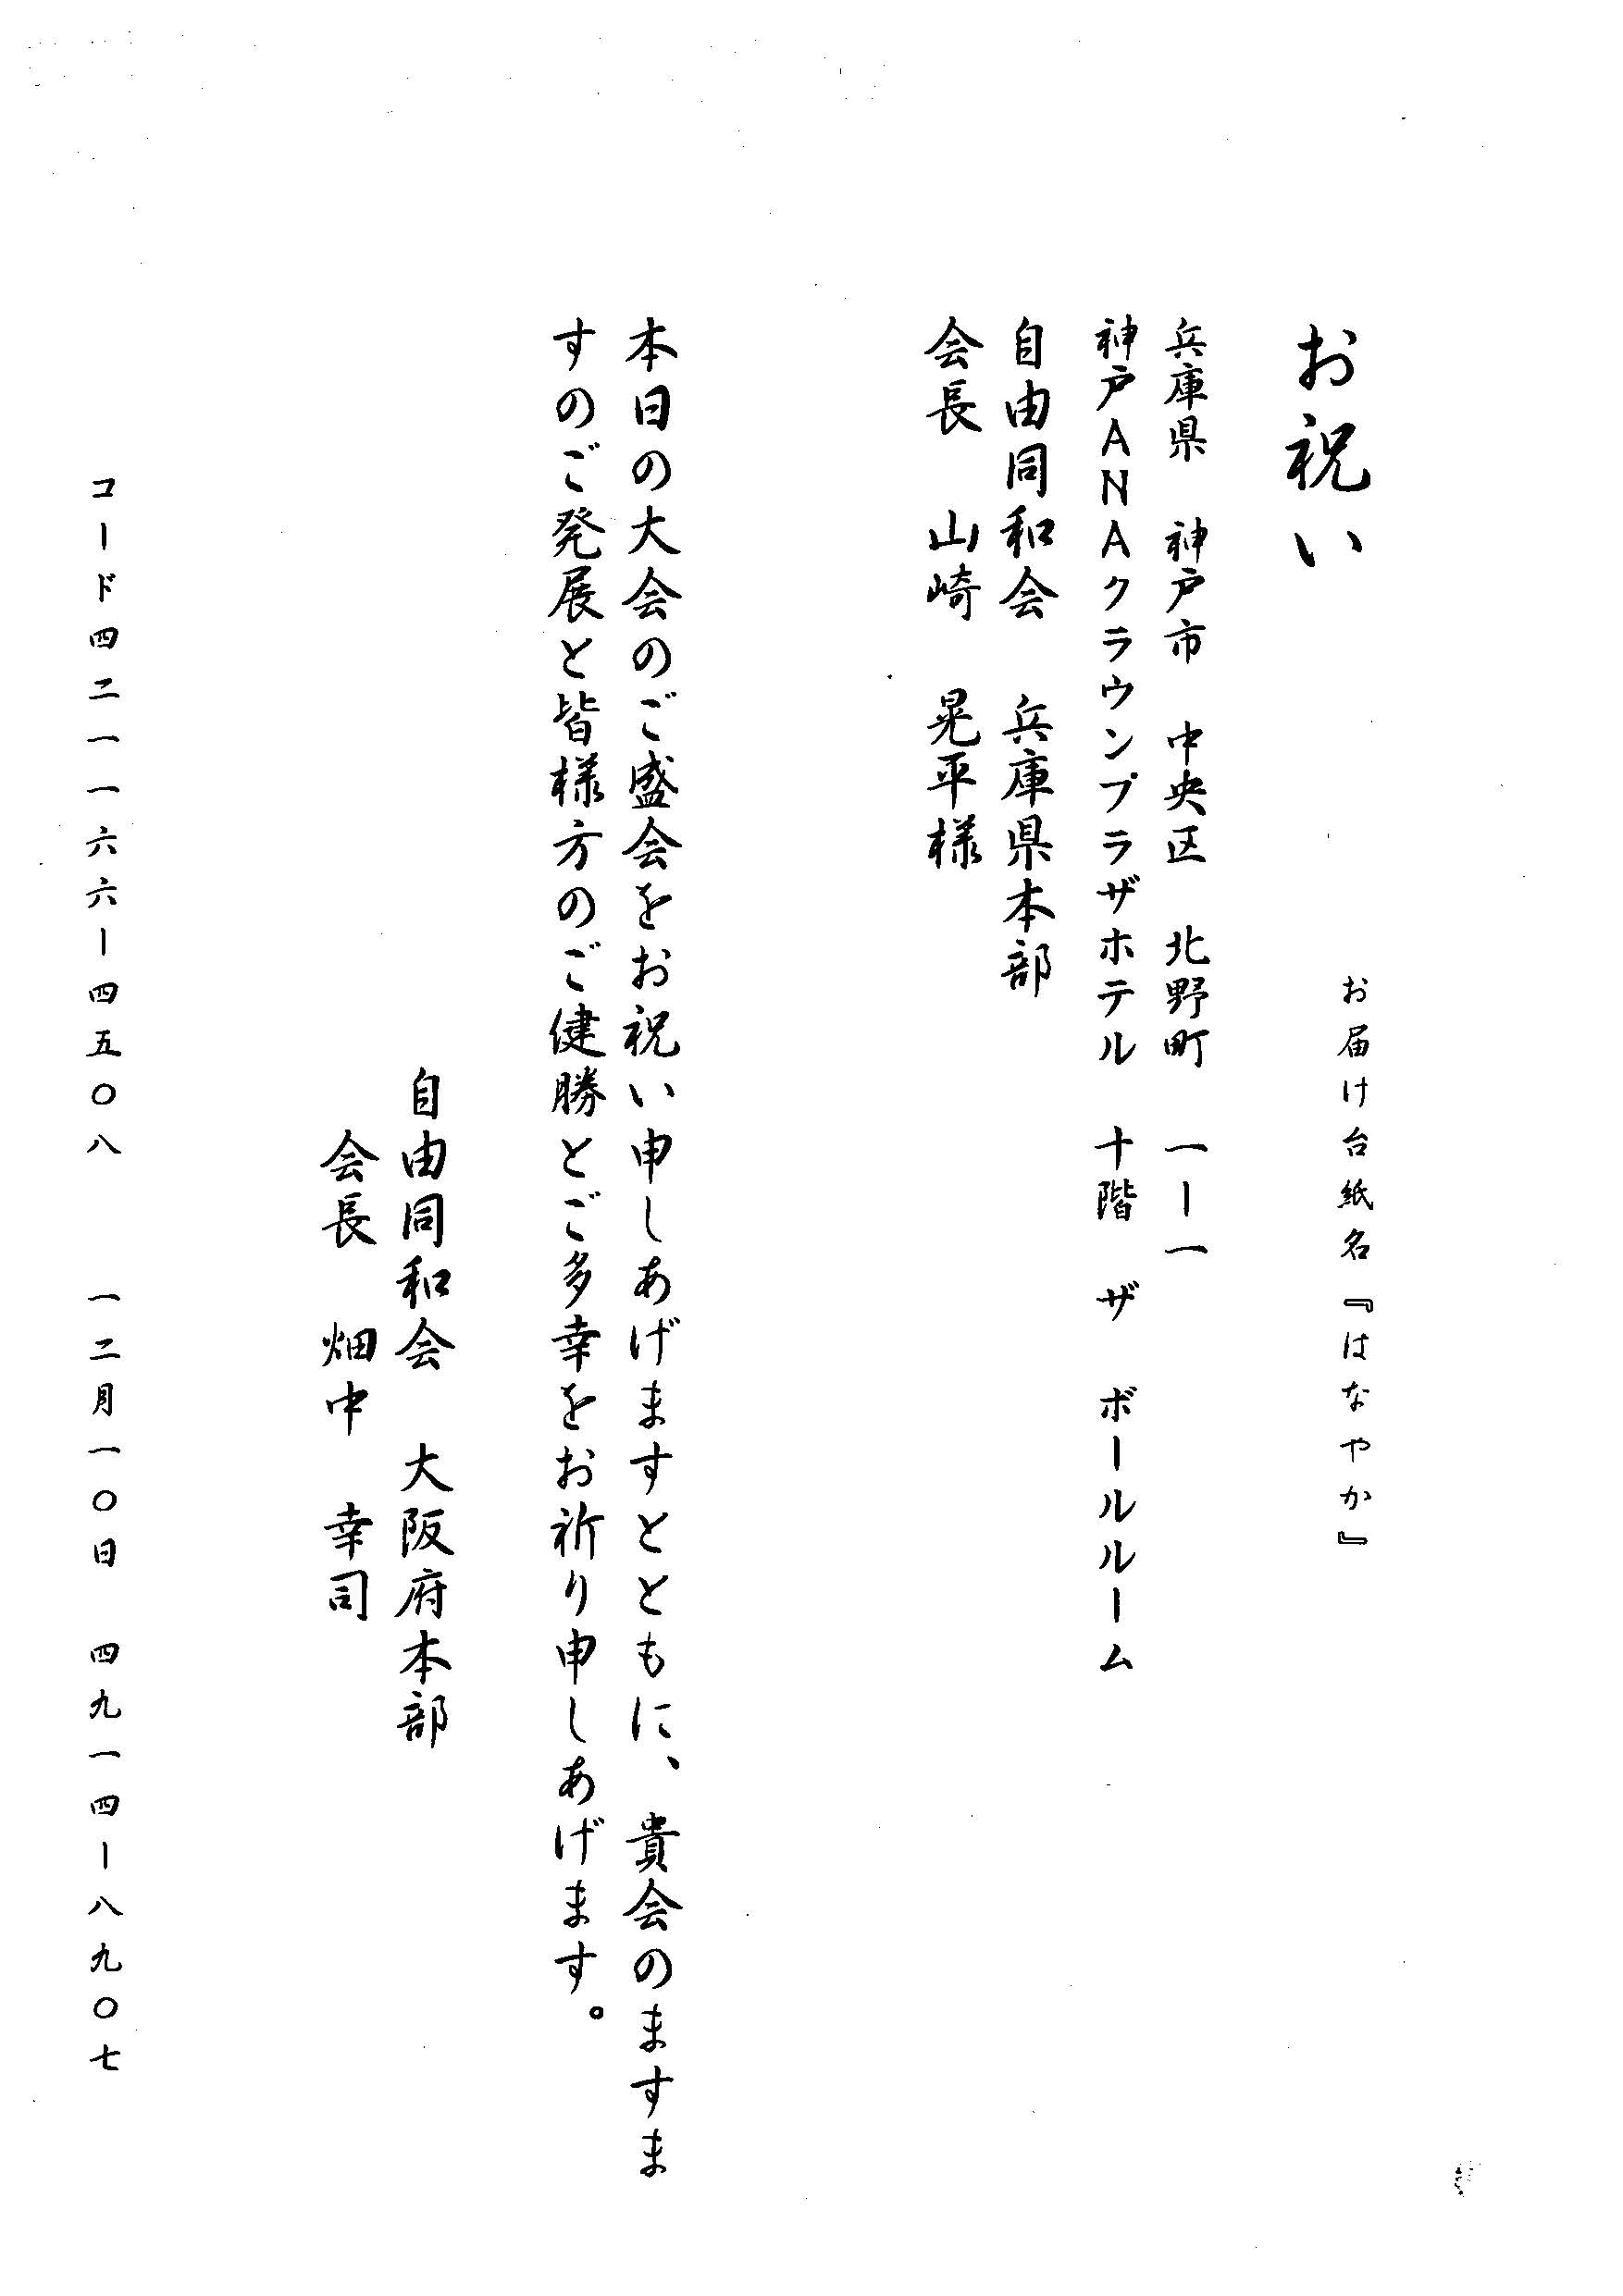 お届け台紙名『はなやか』
お祝い
兵庫県　神戸市　中央区　北野町　一ー一
神戸ANAクラウンプラザホテル　十階　ザ　ボールルーム
自由同和会　兵庫県本部
会長　山崎　晃平様
本日の大会のご盛会をお祝い申しあげますとともに、貴会のますま
すのご発展と皆様方のご健勝とご多幸をお祈り申しあげます。
自由同和会　大阪府本部
会長　畑中　幸司
コード四二一一六六ー四五〇八　　一二月一〇日　四九一四ー八九〇七